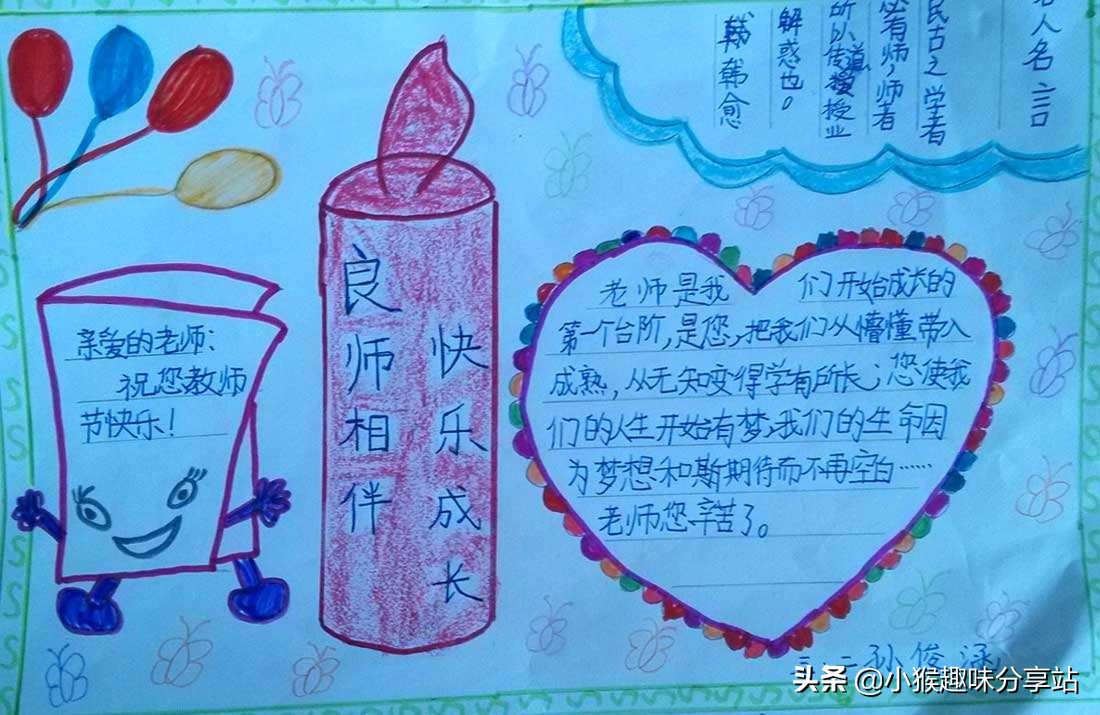 人名言
民古之学者
必有师，师者
所以传道授业
解惑也。
韩韩愈
亲爱的老师：
祝您教师
节快乐！
良师相伴
快乐成长
老师是我们开始成长的
第一个台阶，是您，把我们从懵懂带入
成熟，从无知变得学有所长；您使我
们的人生开始有梦，我们的生命因
为梦想和斯期待而不再空白……
老师您辛苦了。
三、二 孙俊
头条 @小猴趣味分享站